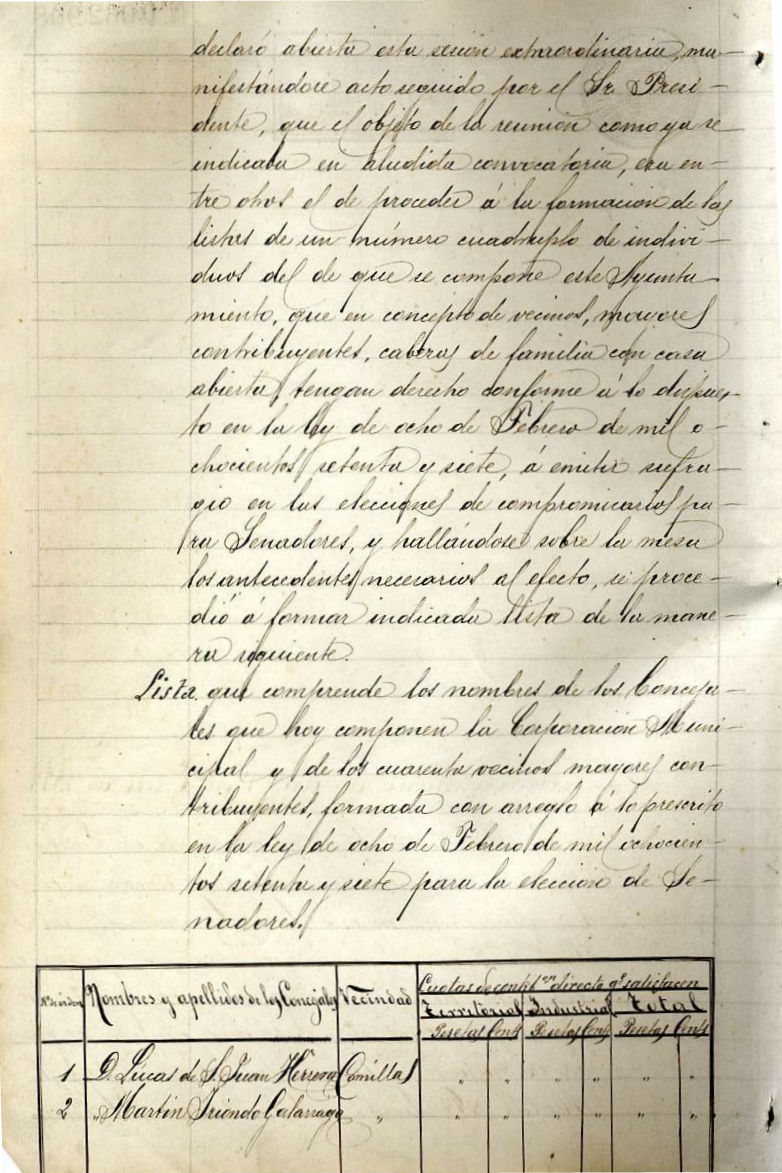 declaró abierta esta sesión extraordinaria, ma-
nifestándose acto seguido por el Sr. Presi-
dente, que el objeto de la reunión como ya se
indicaba en aludida convocatoria, era en-
tre otros el de proceder á la formación de las
listas de un número cuadruplo de indivi-
duos del de que se compone este Ayunta-
miento, que en concepto de vecinos, mayores
contribuyentes, cabezas de familia con casa
abierta, tengan derecho conforme á lo dispues-
to en la ley de ocho de Febrero de mil o-
chocientos setenta y siete, á emitir sufra-
gio en las elecciones de compromisarios pa-
ra Senadores, y hallándose sobre la mesa
los antecedentes necesarios al efecto, se proce-
dió á formar indicada lista de la mane-
ra siguiente.
Lista que comprende los nombres de los Conceja-
les que hoy componen la Corporación Muni-
cipal y de los cuarenta vecinos mayores con-
tribuyentes, formada con arreglo á lo prescrito
en la ley de ocho de Febrero de mil ochocien-
tos setenta y siete para la elección de Se-
nadores.
Nº de orden Nombres y apellidos de los Concejales Vecindad Cuotas de contbᵒⁿ directa qᵉ satisfacen
Territorial Industrial Total
Pesetas Cents Pesetas Cents Pesetas Cents
1 D. Lucas de S. Juan Herrera Comillas " " " " " "
2 " Martín Iriondo Galarraga " " " " " " "